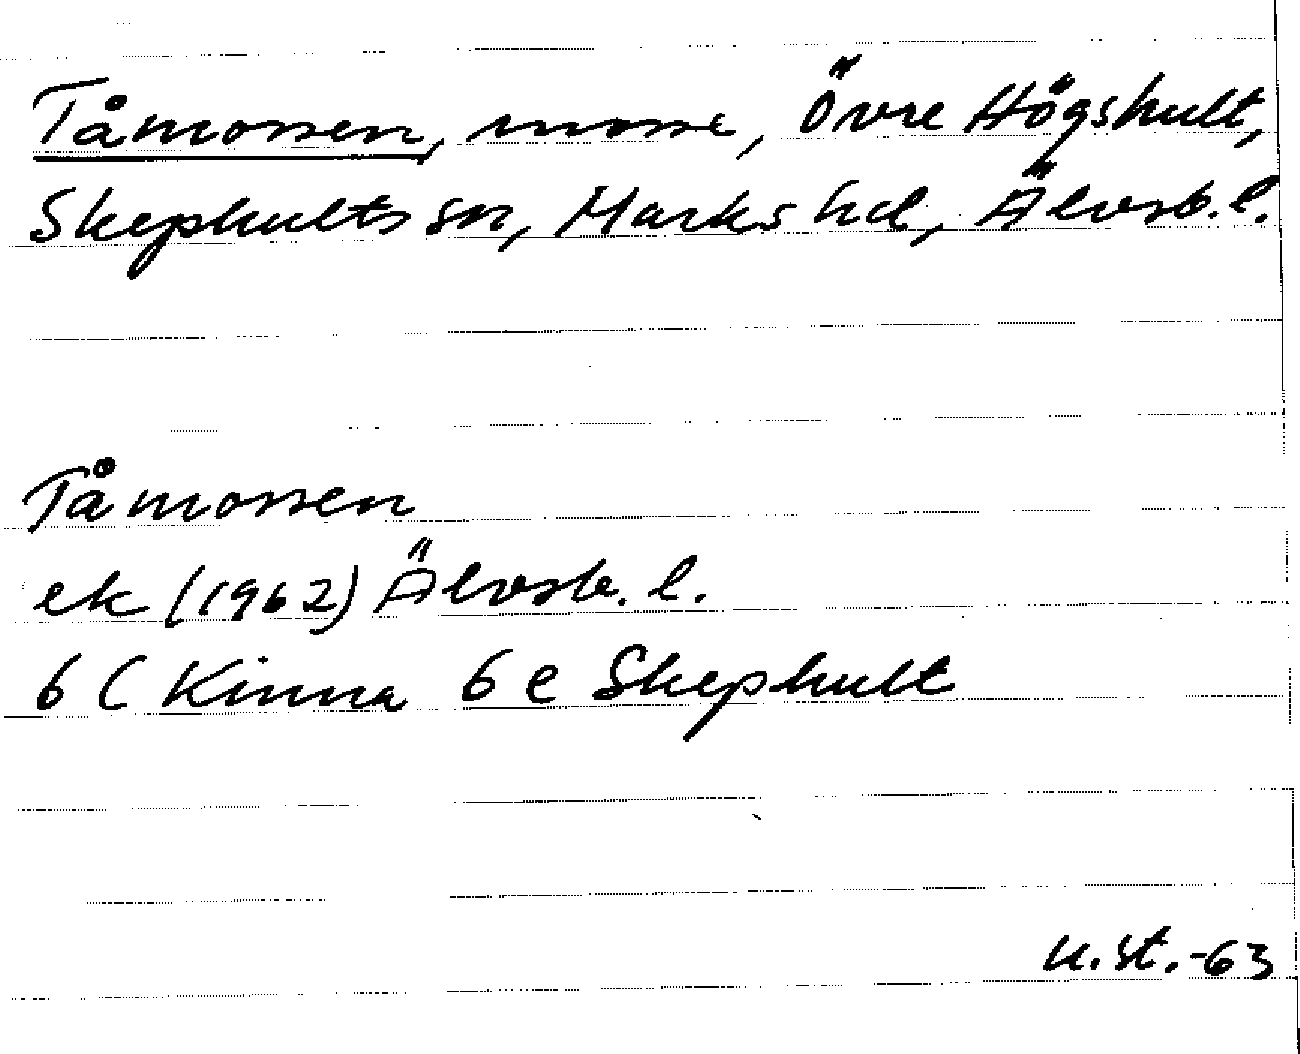 Tåmossen, mosse, Övre Högshult,
Skephults sn, Marks hd, Älvsb. l.
Tåmossen
ek (1962) Älvsb. l.
6 C Kinna 6 e Skephult
u. st. -63